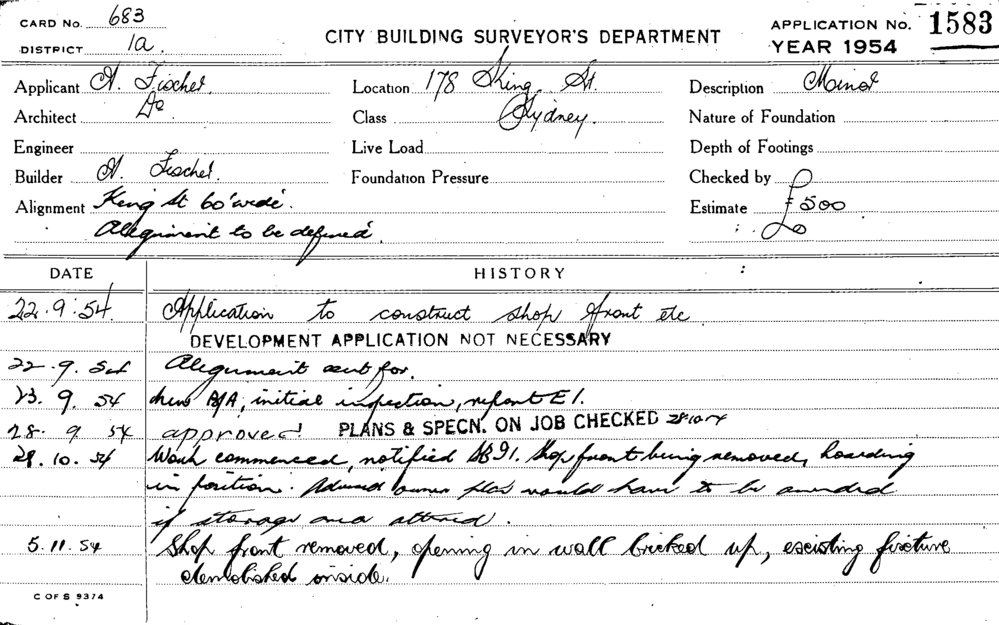 CARD No. 683
DISTRICT 1a.
CITY BUILDING SURVEYOR'S DEPARTMENT
APPLICATION No. 1583
YEAR 1954
Applicant A. Fischel.
Location 178 King St.
Description Minor
Architect Do
Class Sydney.
Nature of Foundation
Engineer
Live Load
Depth of Footings
Builder A. Fischel.
Foundation Pressure
Checked by
Alignment King St 60' wide.
Estimate £500
Alignment to be defined.
DATE HISTORY
22.9.54. Application to construct shop front etc
DEVELOPMENT APPLICATION NOT NECESSARY
22.9.54 Alignment sent for.
23.9.54 New B/A, initial inspection, report E1.
28.9.54 approved PLANS & SPECN. ON JOB CHECKED 28-10-54
28.10.54 Work commenced, notified Shop front being removed, hoarding
in position. Advised owner plans would have to be amended
if storage area altered.
5.11.54 Shop front removed, opening in wall bricked up, existing fixture
demolished inside.
C OF S 9374